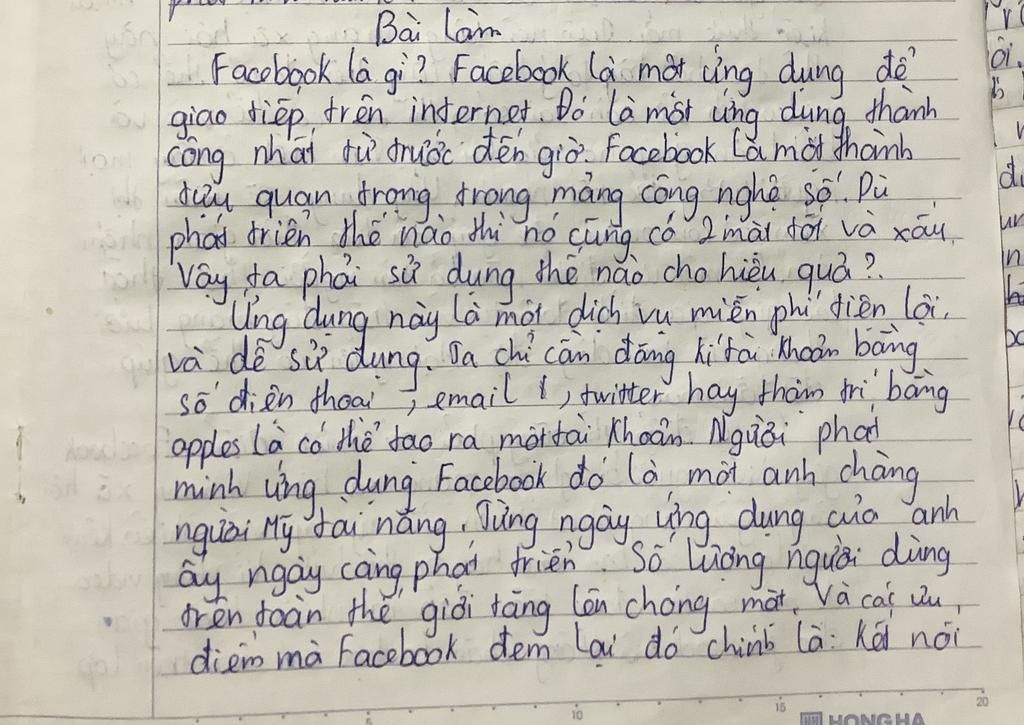 Bài làm
Facebook là gì? Facebook là một ứng dụng để
giao tiếp trên internet. Đó là một ứng dụng thành
công nhất từ trước đến giờ. Facebook là một thành
tựu quan trọng trong mảng công nghệ số. Dù
phát triển thế nào thì nó cũng có 2 mặt tốt và xấu.
Vậy ta phải sử dụng thế nào cho hiệu quả?
Ứng dụng này là một dịch vụ miễn phí tiện lợi,
và dễ sử dụng. Ta chỉ cần đăng kí tài khoản bằng
số điện thoại, email, twitter hay thậm trí bằng
apples là có thể tạo ra một tài khoản. Người phát
minh ứng dụng Facebook đó là một anh chàng
người Mỹ tài năng. Từng ngày ứng dụng của anh
ấy ngày càng phát triển. Số lượng người dùng
trên toàn thế giới tăng lên chóng mặt. Và các ưu
điểm mà Facebook đem lại đó chính là: Kết nối
10
15
20
HONG HA